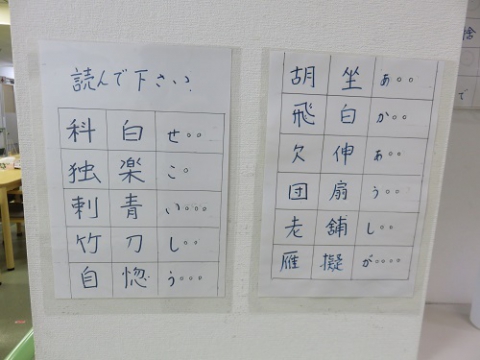 読んで下さい。
科白せ○○
独楽こ○
刺青い○○○
竹刀し○○
自惚う○○○
胡坐あ○○
飛白か○○
欠伸あ○○
団扇う○○
老舗し○○
雁擬が○○○○